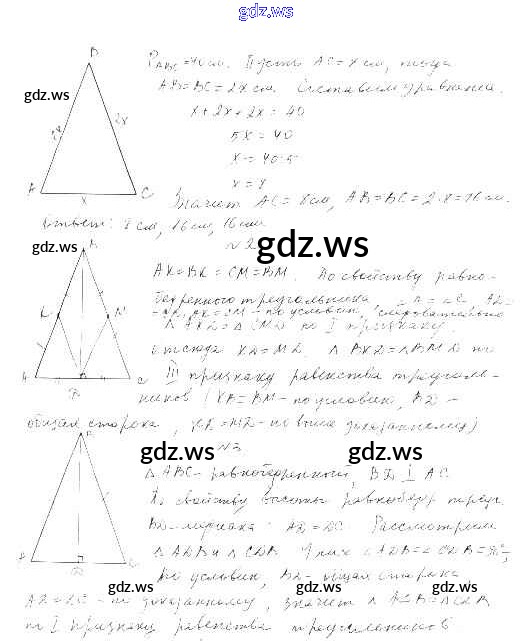 gdz.ws
P_ABC = 40 см. Пусть AC = x см, тогда
AB = BC = 2x см. Составим уравнение.
x + 2x + 2x = 40
5x = 40
x = 40:5
x = 8
Значит AC = 8 см, AB = BC = 2·x = 16 см.
Ответ: 8 см, 16 см, 16 см
N 2
AK = BK = CM = BM. По свойству равно-
бедренного треугольника
по условию, следовательно
по I признаку.
отсюда KD = MD. △ BKD = △ BMD по
III признаку равенства треуголь-
ников (KB = BM - по условию, BD -
общая сторона, KD = MD - по выше доказанному)
N 3
△ ABC - равнобедренный, BD ⊥ AC
По свойству высоты равнобедр. треуг.
BD - медиана. AD = DC. Рассмотрим
△ ADB и △ CDB. У них ∠ADB = ∠CDB = 90°,
по условию, BD - общая сторона
AD = DC - по доказанному, значит △ ADB = △ CDB
по I признаку равенства треугольников
B
2x
2x
A
x
C
gdz.ws
gdz.ws
gdz.ws
B
K
D
C
gdz.ws
gdz.ws
B
A
D
C
gdz.ws
gdz.ws
gdz.ws